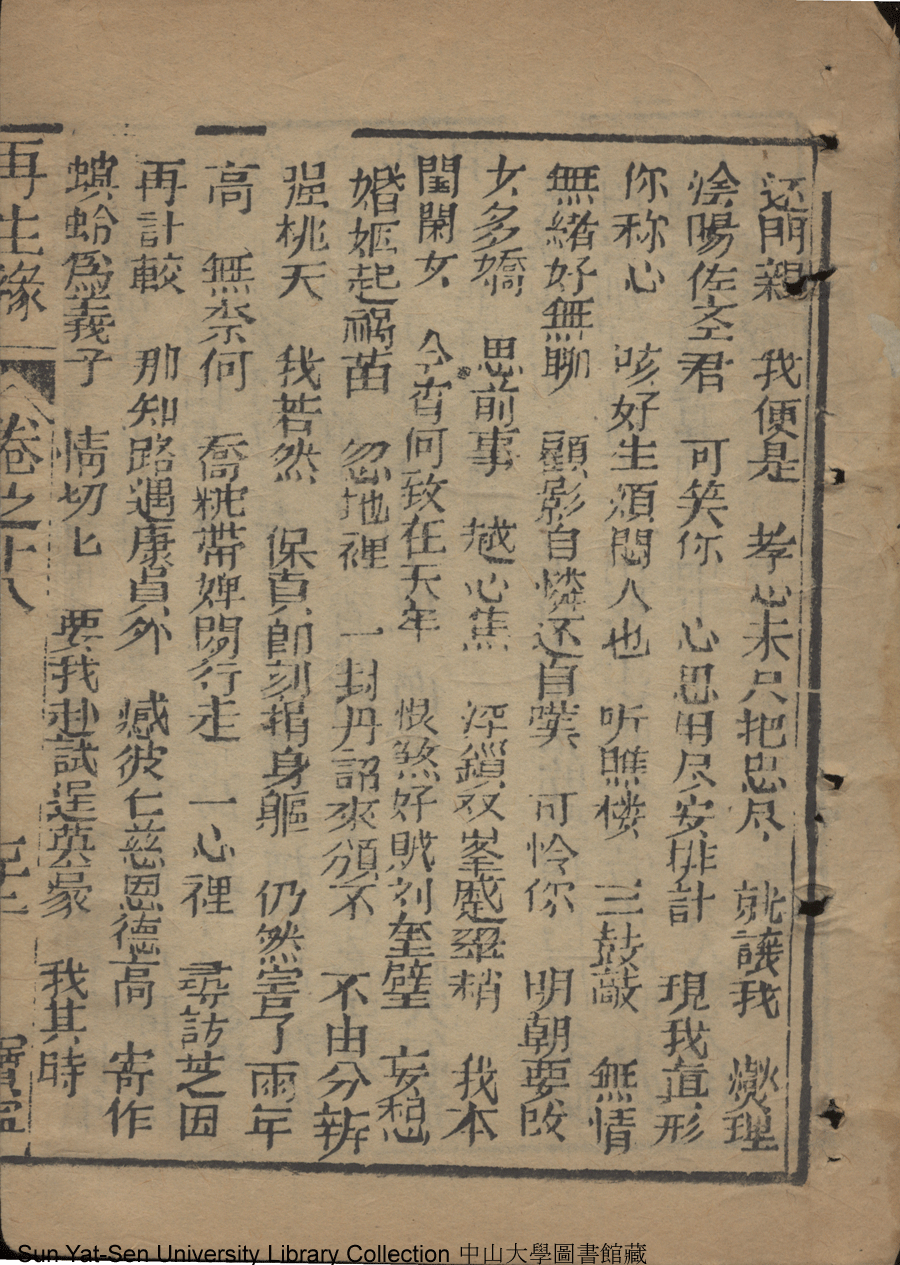 还門親　我便是　孝心未尽把忠尽　就讓我　燮理
陰陽佐圣君　可笑你　心思用尽安排計　現我直形
你称心　咳好生煩悶人也　听瞧楼　三鼓敲　無情
無緒好無聊　顧影自憐还自嘆　可怜你　明朝要改
女多嬌　思前事　越心焦　淫鎖双峯蹙翠梢　我本
閨閑女　今宵何致在天年　恨煞好賊刘奎璧　妄想
婚姻起禍苗　忽地裡　一封丹詔來頒不　不由分辨
强桃夭　我若然　保真即刻捐身軀　仍然害了兩年
高　無柰何　喬粧帶婢閃行走　一心裡　尋訪芝田
再計較　那知路遇康員外　感彼仁慈恩德高　寄作
螟蛉爲義子　情切匕　要我赴試逞英豪　我其時
再生緣　卷之十八
Sun Yat-Sen University Library Collection 中山大學圖書館藏